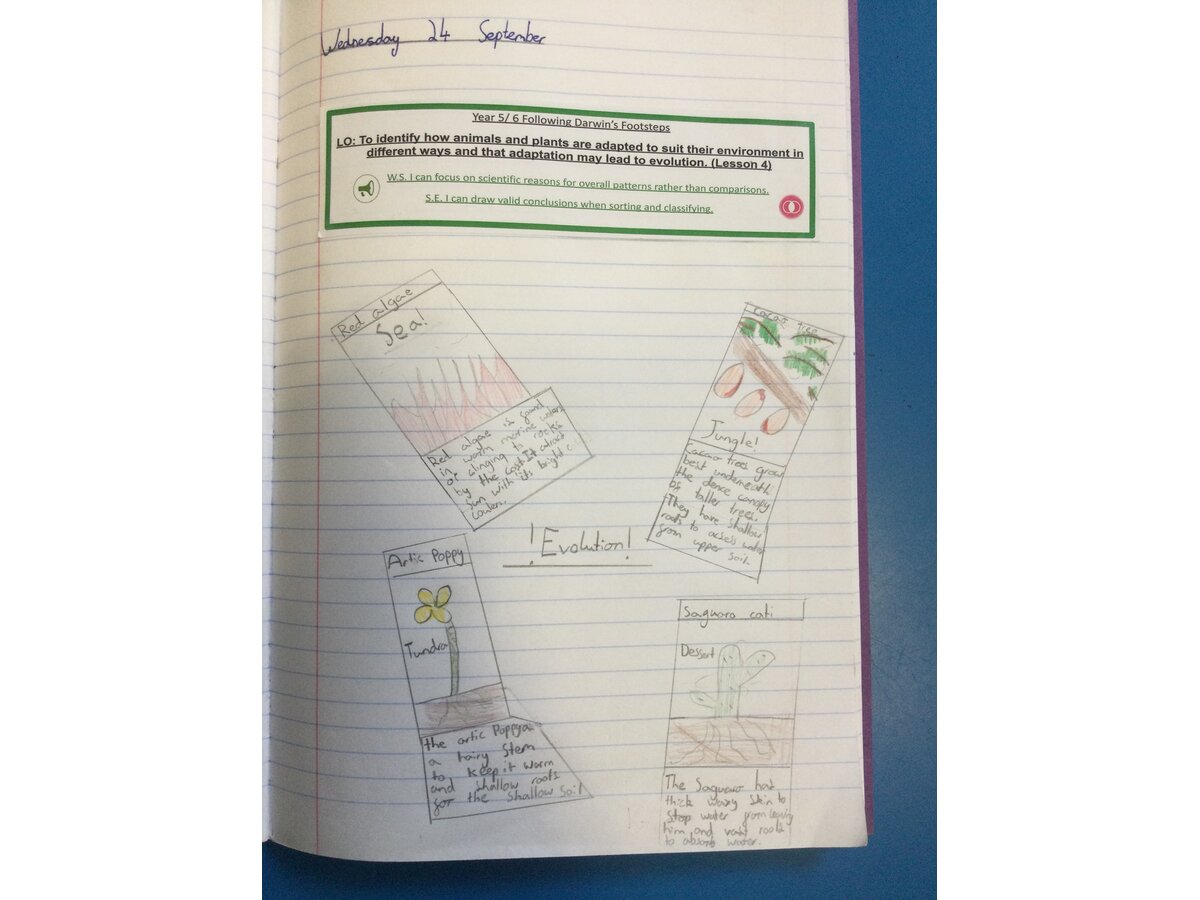 Wednesday 24 September
Year 5/ 6 Following Darwin's Footsteps
LO: To identify how animals and plants are adapted to suit their environment in
different ways and that adaptation may lead to evolution. (Lesson 4)
W.S. I can focus on scientific reasons for overall patterns rather than comparisons.
S.E. I can draw valid conclusions when sorting and classifying.
Red algae
Sea!
Red algae is found
in warm marine waters
or clinging to rocks
by the cost It atract
sun with its bright
coulers.
Cacao tree
Jungle!
Cacao trees grow
best underneath
the dence canopy
of taller trees.
They have shallow
roots to acsess water
from upper soil.
!Evolution!
Artic Poppy
Tundra
the artic Poppy
a hairy stem
to keep it warm
and shallow roots
for the shallow soil
Saguaro cati
Dessert
The Saguaro has
thick waxy skin to
stop water from leaving
him and vast roots
to absorb water.